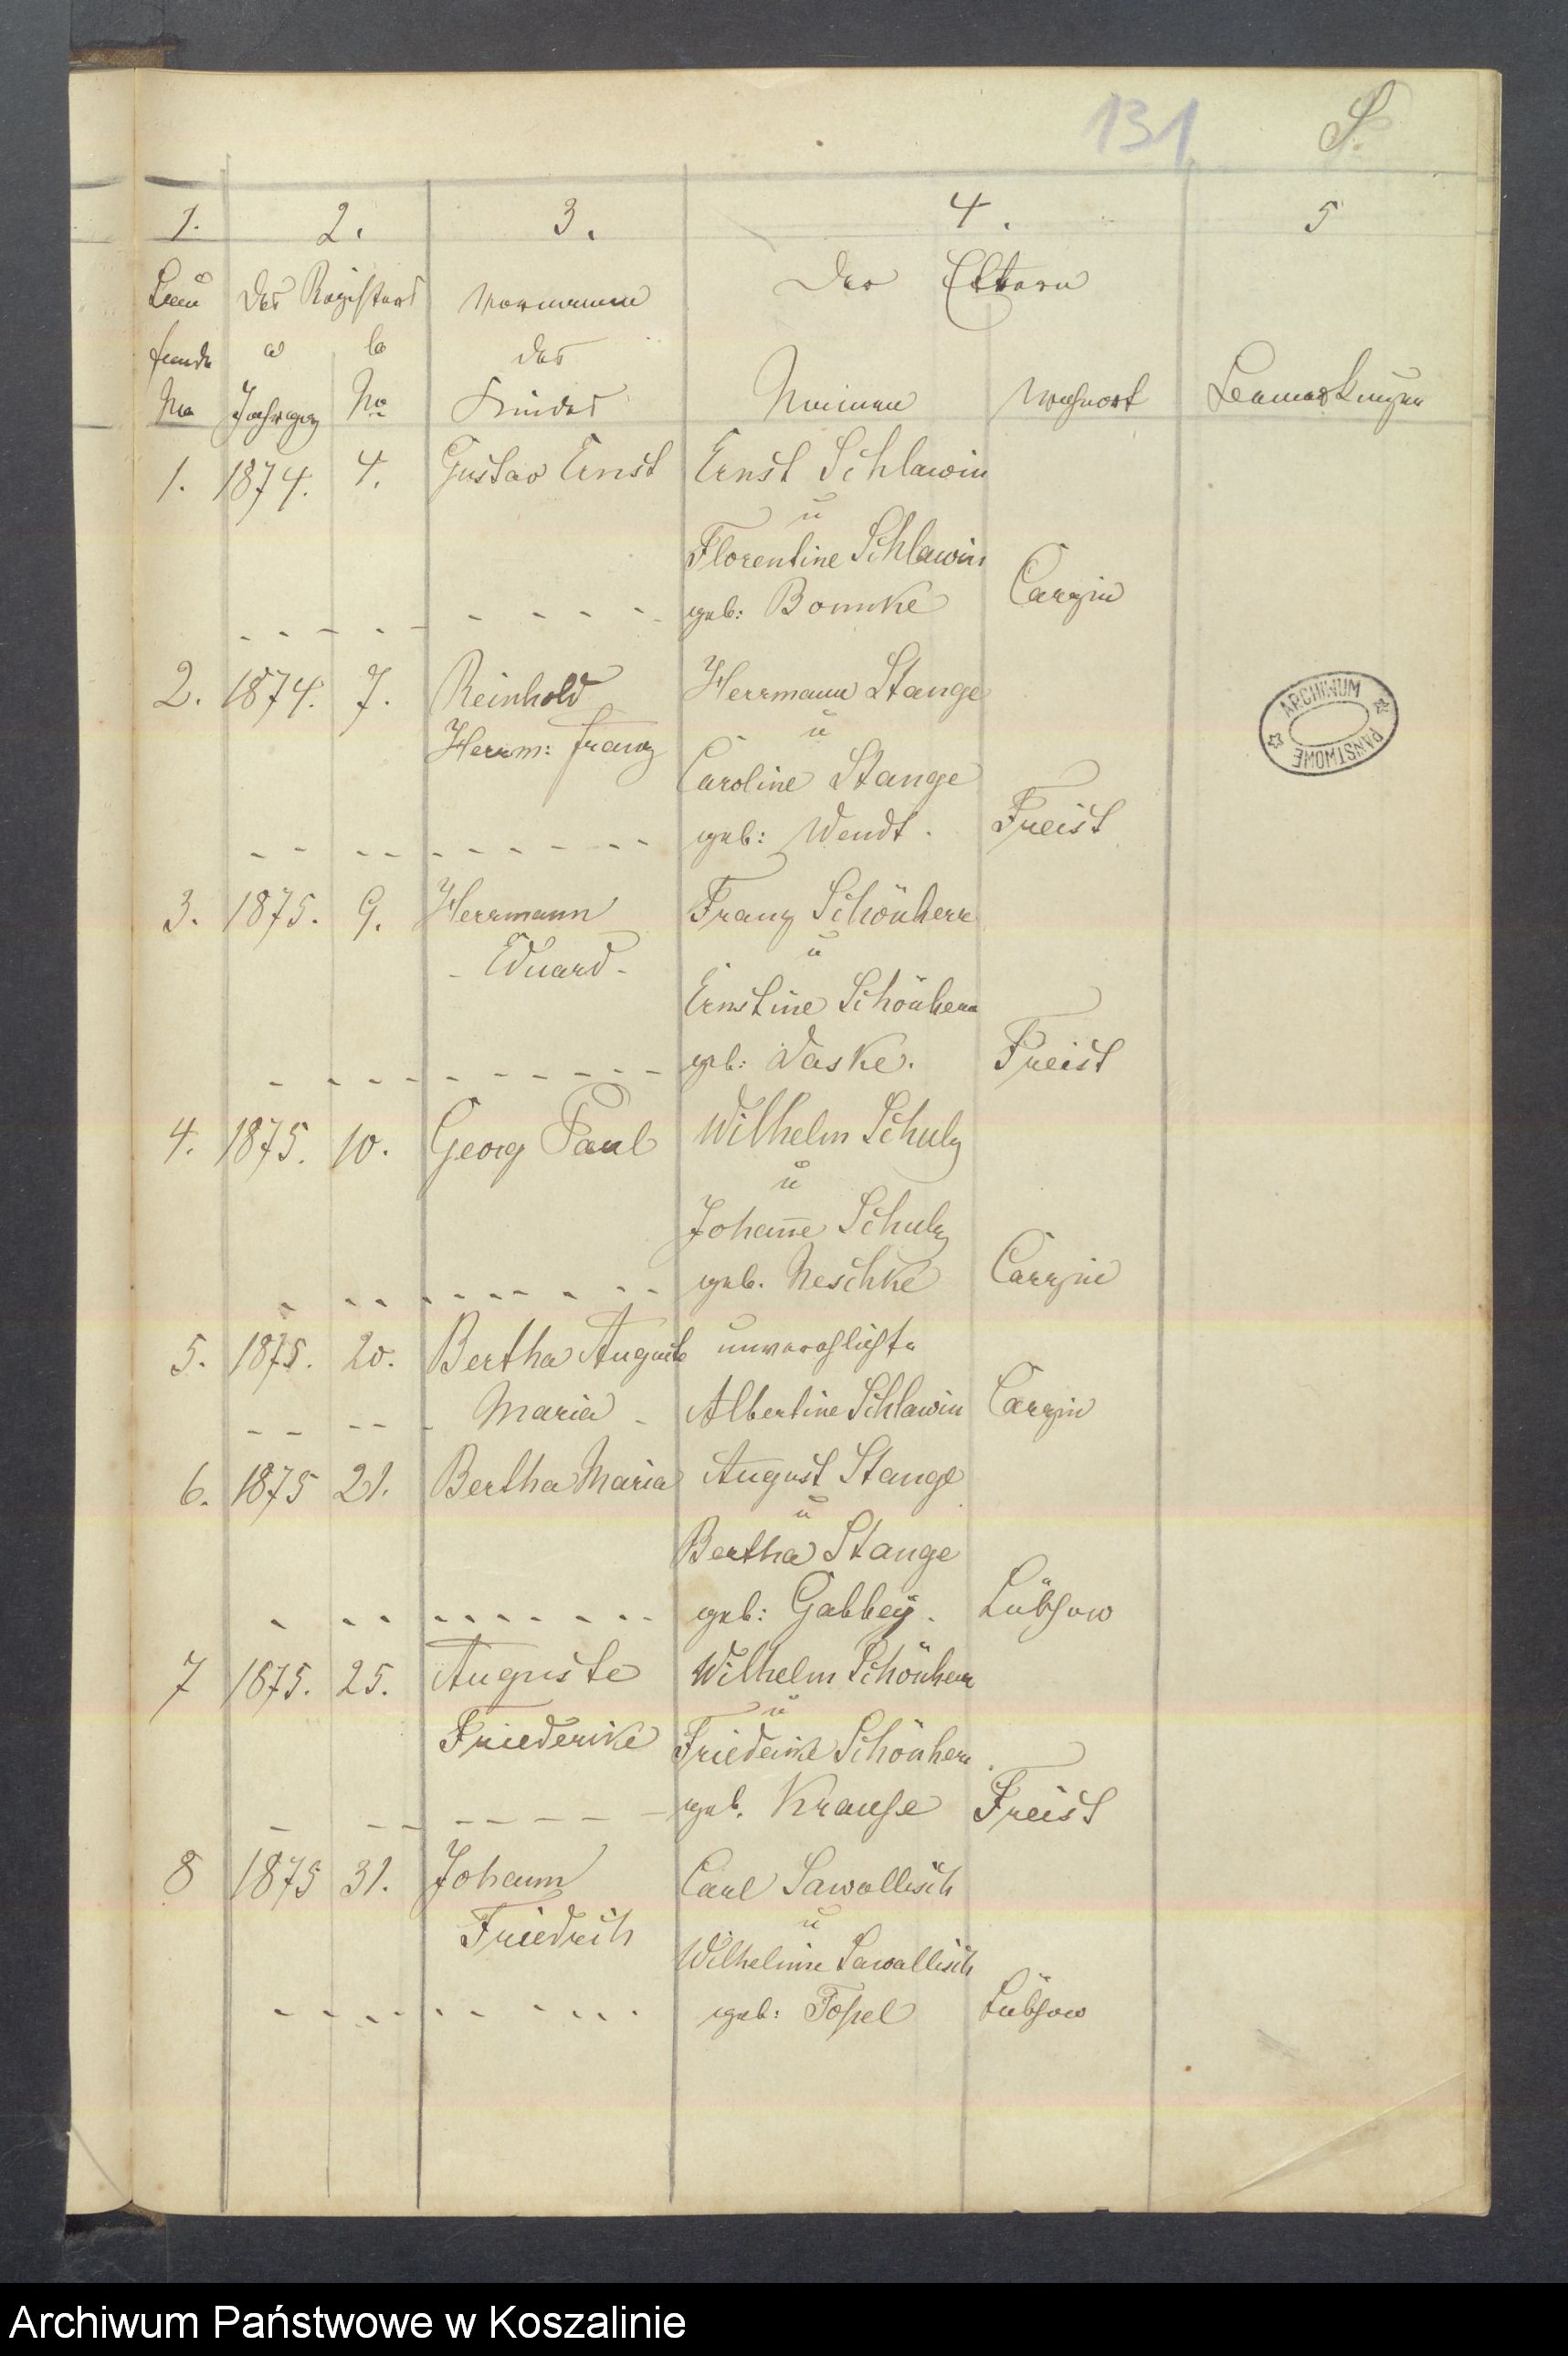 131 S.
1. 2. 3. 4. 5
Lau des Registers Vornamen Der Eltern
fende a b des
No Jahrgang No Kindes Namen Wohnort Bemerkungen
1. 1874. 4. Gustav Ernst Ernst Schlawin
u
Florentine Schlawin
geb: Bonnke Carzin
2. 1874. 7. Reinhold Herrmann Stange
Herrm: Franz u
Caroline Stange
geb: Wendt. Freist
ARCHIWUM PAŃSTWOWE
3. 1875. 9. Herrmann Franz Schönherr
- Eduard - u
Ernstine Schönherr
geb: Vaske. Freist
4. 1875. 10. Georg Paul Wilhelm Schulz
u
Johan̅e Schulz
geb. Neschke Carzin
5. 1875. 20. Bertha Auguste unverehlichte
Maria - Albertine Schlawin Carzin
6. 1875 21. Bertha Maria August Stange
u
Bertha Stange
geb: Gabbey. Lübzow
7 1875. 25. Auguste Wilhelm Schönherr
u
Friederike Friederike Schönherr
geb. Krause Freist
8 1875 31. Johann Carl Sawallisch
u
Friedrich Wilhelmine Sawallisch
geb: Lübzow
Archiwum Państwowe w Koszalinie